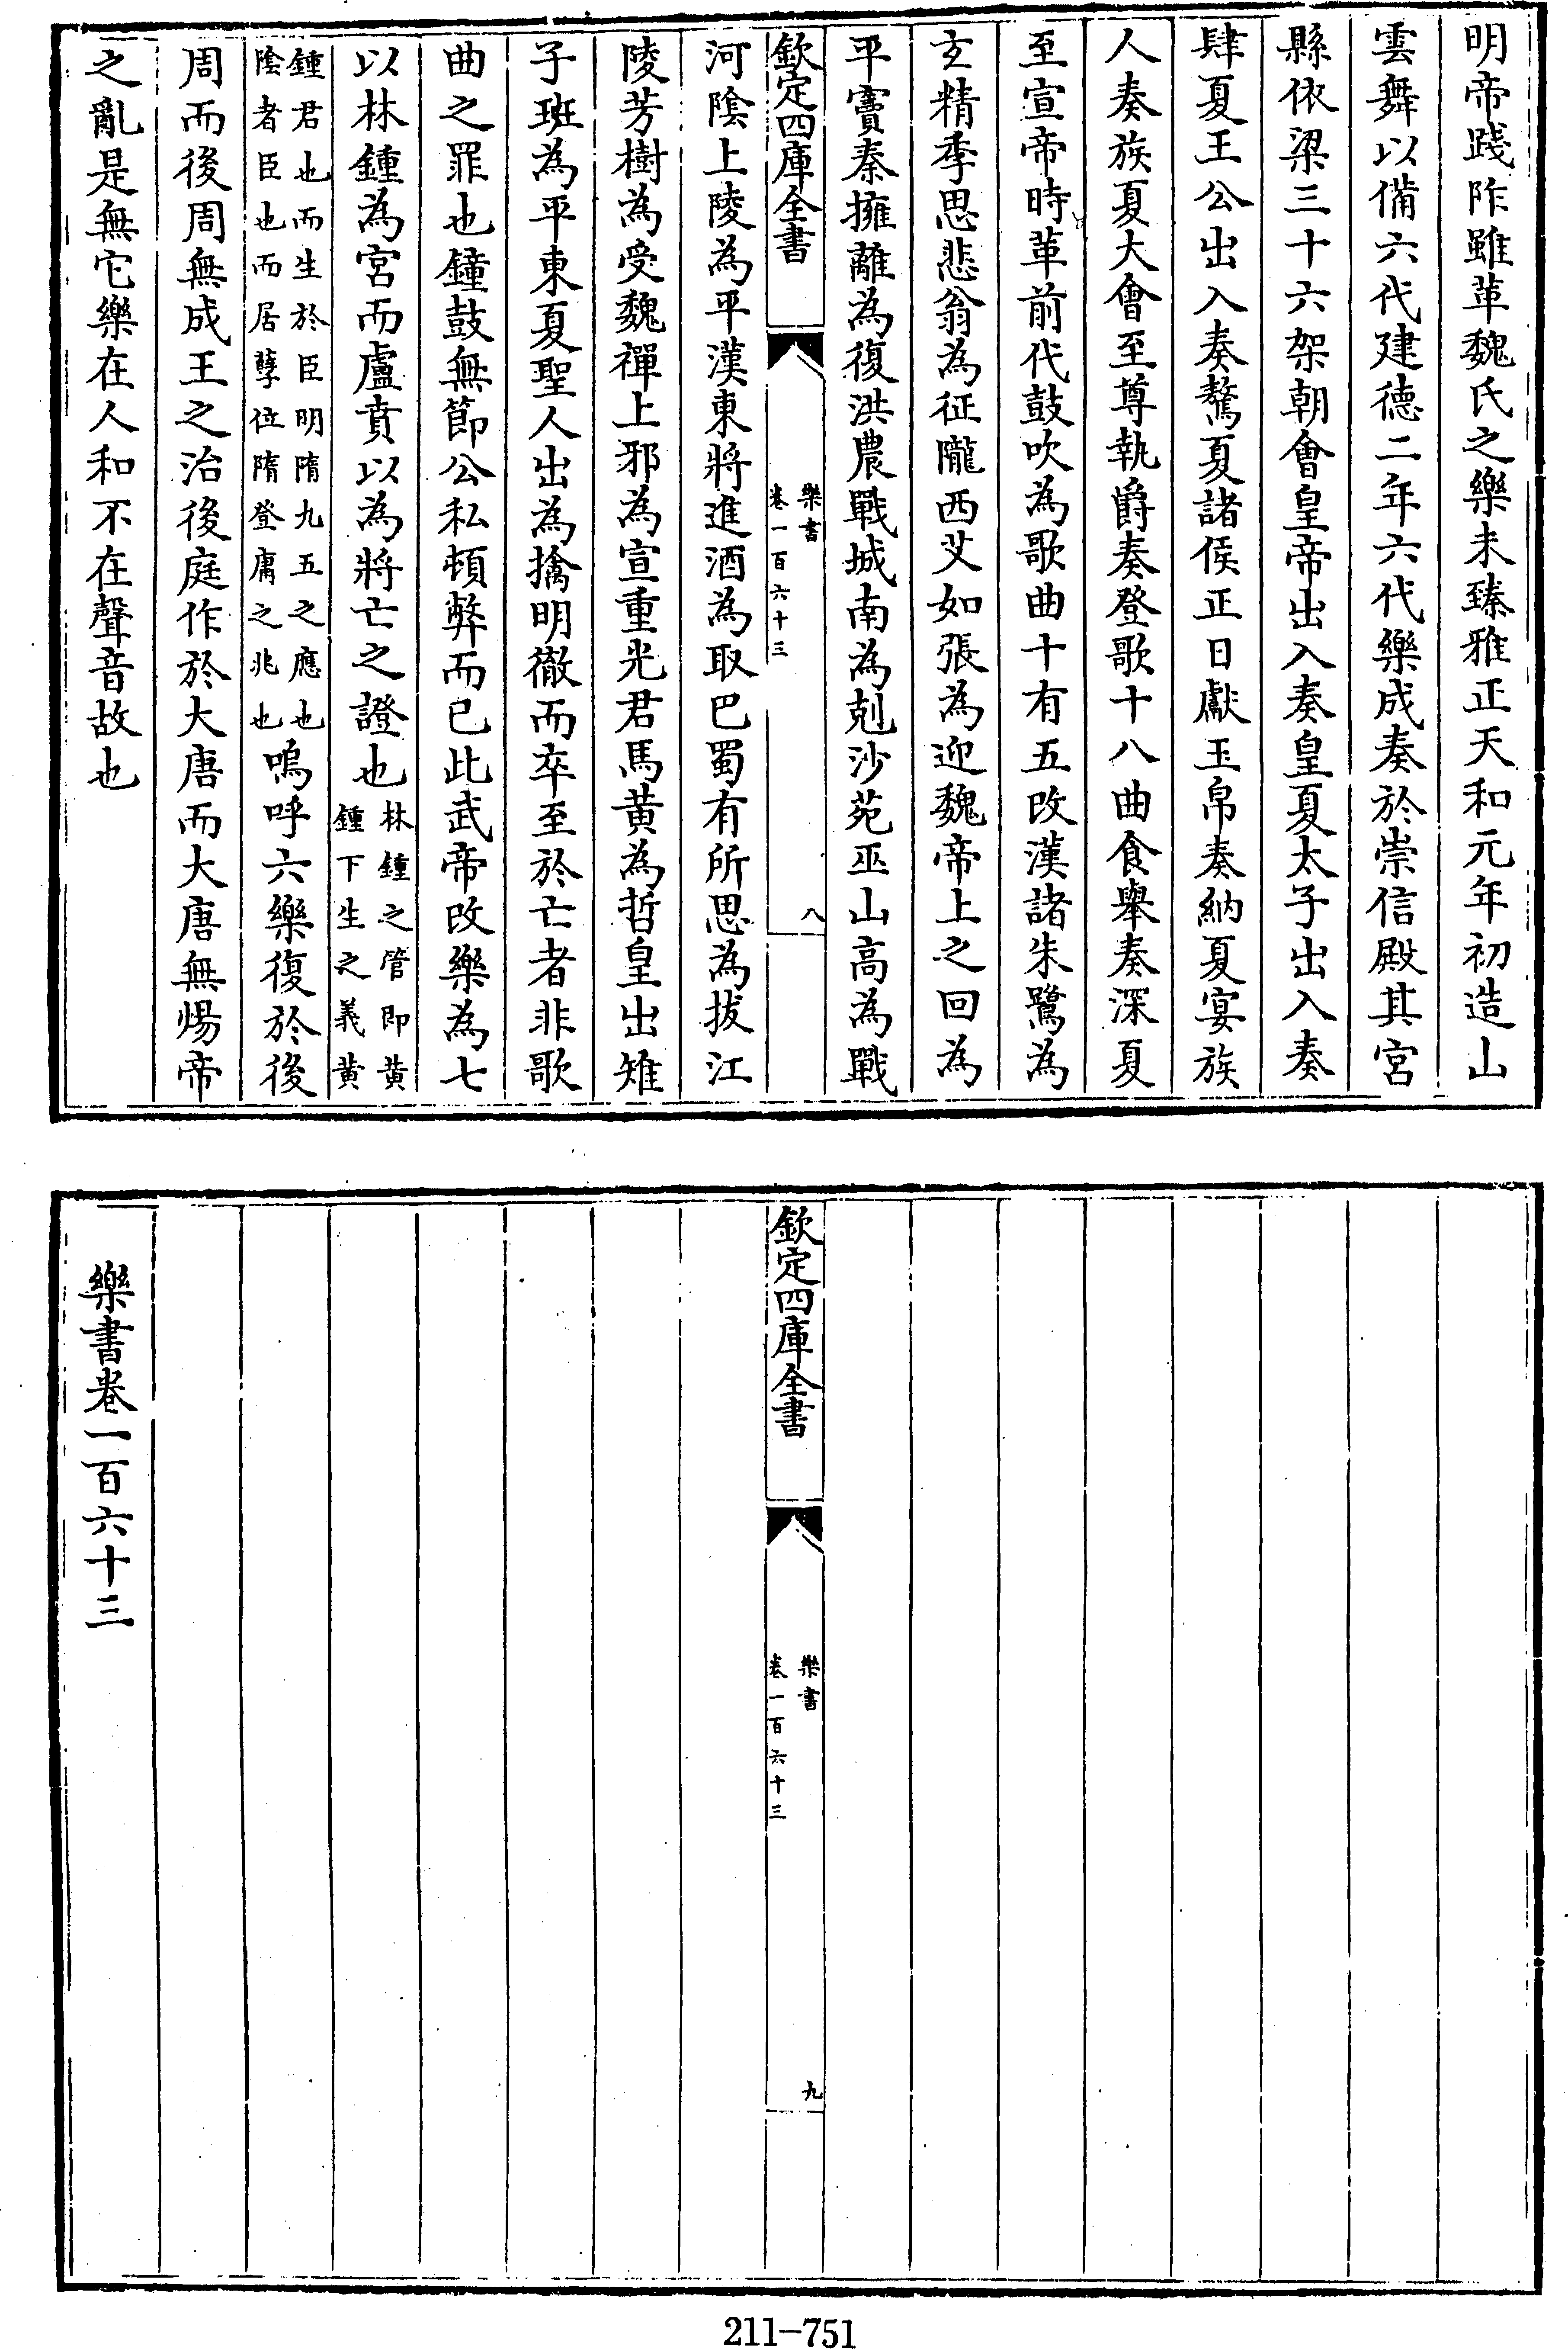 明帝踐阼雖革魏氏之樂未臻雅正天和元年初造山
雲舞以備六代建德二年六代樂成奏於崇信殿其宮
縣依梁三十六架朝會皇帝出入奏皇夏太子出入奏
肆夏王公出入奏驁夏諸侯正日獻玉帛奏納夏宴族
人奏族夏大會至尊執爵奏登歌十八曲食舉奏深夏
至宣帝時革前代鼓吹為歌曲十有五改漢諸朱鷺為
玄精季思悲翁為征隴西艾如張為迎魏帝上之回為
平竇秦擁離為復洪農戰城南為剋沙苑巫山高為戰
欽定四庫全書
樂書
卷一百六十三
八
河陰上陵為平漢東將進酒為取巴蜀有所思為拔江
陵芳樹為受魏禪上邪為宣重光君馬黃為哲皇出雉
子班為平東夏聖人出為擒明徹而卒至於亡者非歌
曲之罪也鐘鼓無節公私頓弊而已此武帝改樂為七
以林鍾為宮而盧賁以為將亡之證也林鍾之管即黃
鍾下生之義黃
鍾君也而生於臣明隋九五之應也
陰者臣也而居孽位隋登庸之兆也嗚呼六樂復於後
周而後周無成王之治後庭作於大唐而大唐無煬帝
之亂是無它樂在人和不在聲音故也
欽定四庫全書
樂書
卷一百六十三
九
樂書卷一百六十三
211-751